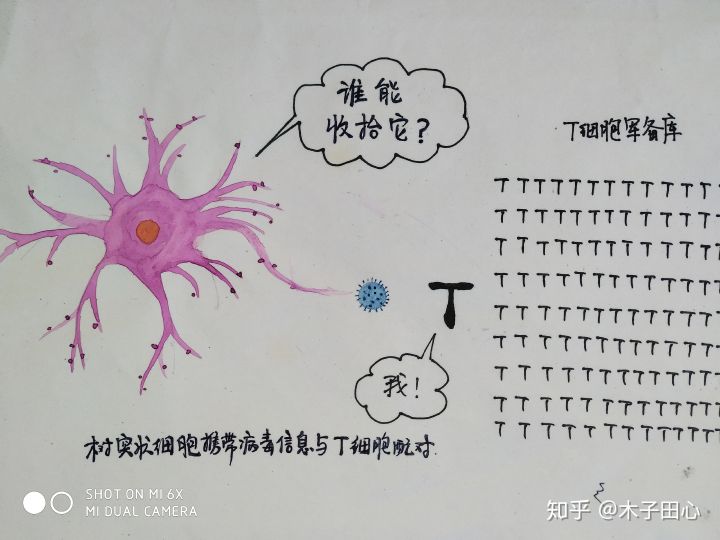 谁能
收拾它?
T细胞军备库
T T T T T T T T T T T T T
T T T T T T T T T T T T T
T T T T T T T T T T T T T
T T T T T T T T T T T T T
T T T T T T T T T T T T T
T T T T T T T T T T T T T T
T T T T T T T T T T T T T T
T T T T T T T T T T T T T T
T T T T T T T T T T T T T T
T
我!
树突状细胞携带病毒信息与T细胞配对
SHOT ON MI 6X
MI DUAL CAMERA
知乎 @木子田心